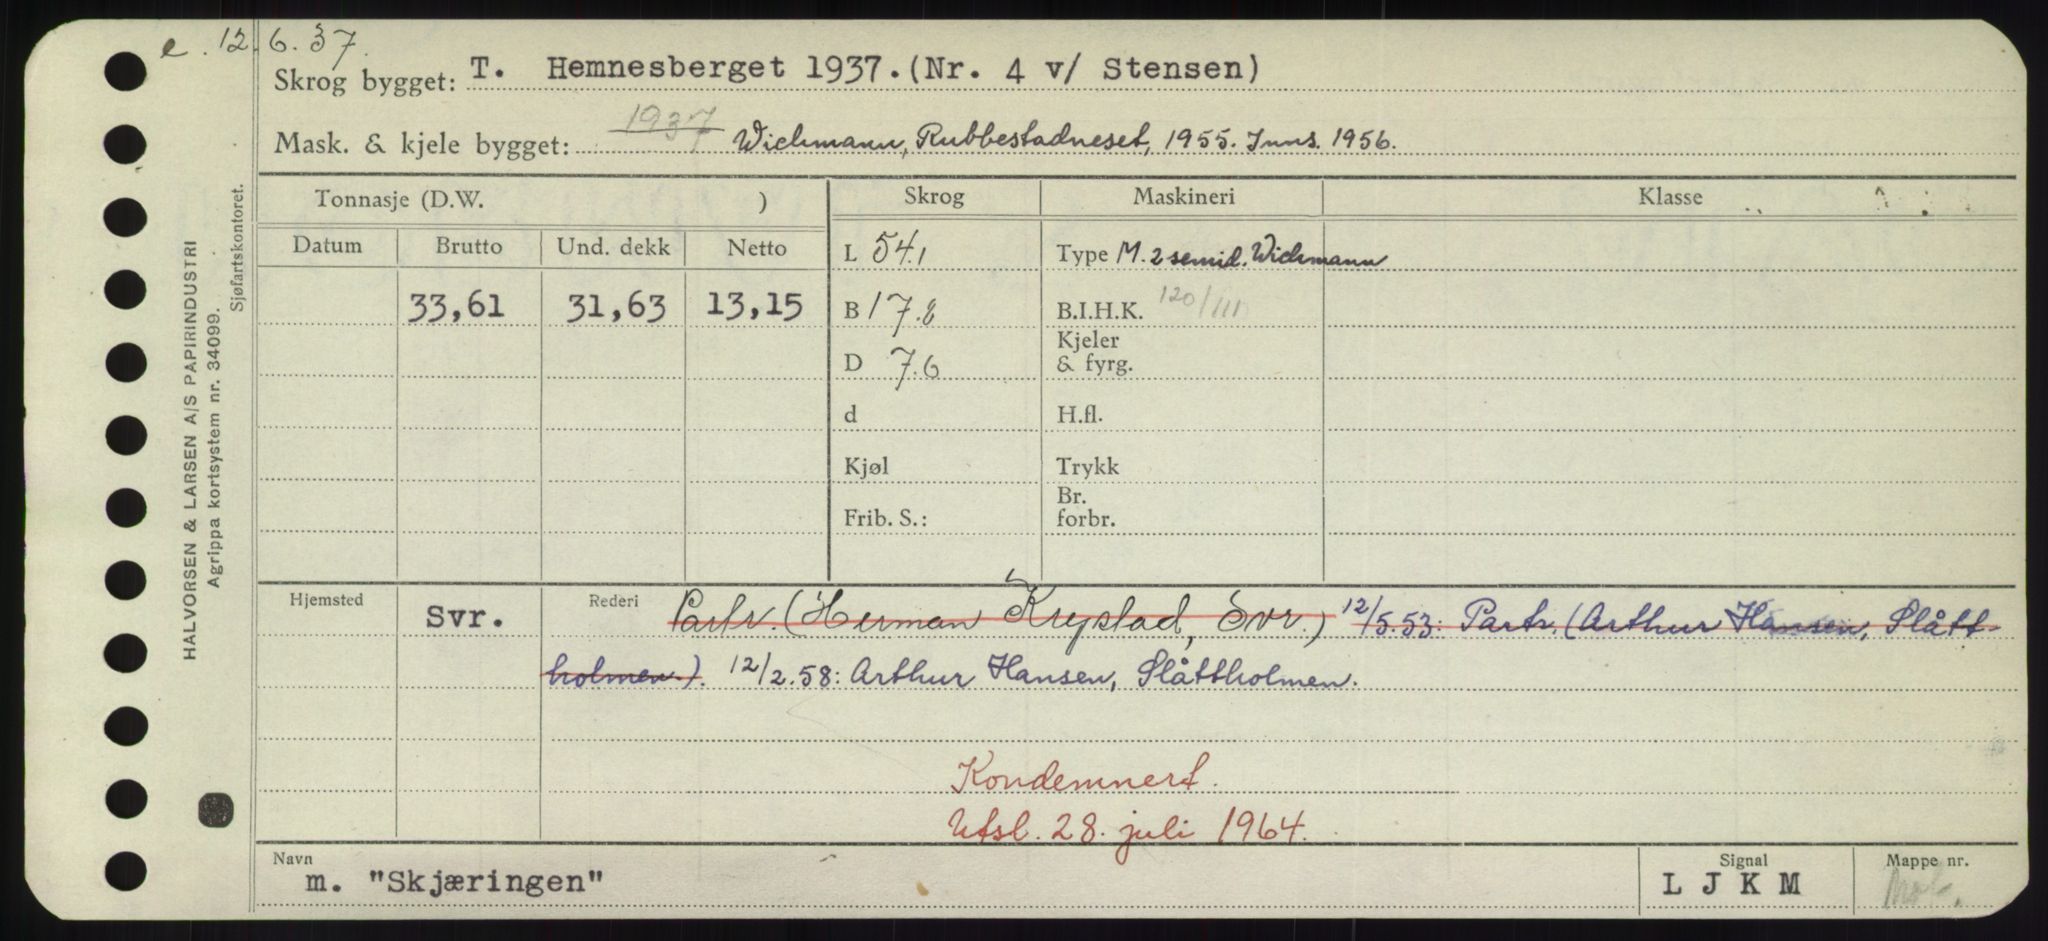 e. 12.6.37.
Skrog bygget: T. Hemnesberget 1937. (Nr. 4 v/ Stensen)
Mask. & kjele bygget: 1937 Wichmann, Rubbestadneset, 1955. Inns. 1956.
Tonnasje (D.W. ) Skrog Maskineri Klasse
Datum Brutto Und. dekk Netto L 54,1 Type M. 2 semid. Wichmann
33,61 31,63 13,15 B 17.8 B.I.H.K. 120/111
D 7.6 Kjeler & fyrg.
d H.fl.
Kjøl Trykk
Frib. S.: Br. forbr.
Hjemsted Svr. Rederi Partr. (Herman Krystad, Svr.) 12/5.53: Partr. (Arthur Hansen, Slått-
holmen). 12/2.58: Arthur Hansen, Slåttholmen.
Kondemnert.
Utsl. 28. juli 1964.
Navn Signal Mappe nr.
m. "Skjæringen" L J K M
HALVORSEN & LARSEN A/S PAPIRINDUSTRI
Agrippa kortsystem nr. 34099.
Sjøfartskontoret.